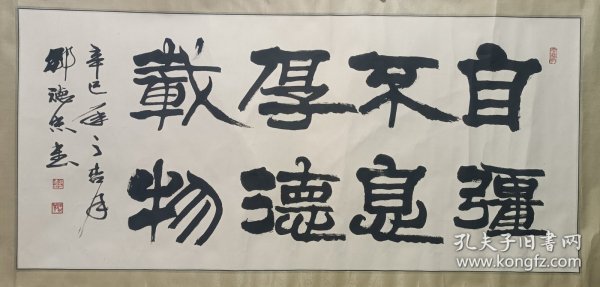 自彊
不息
厚德
載物
辛巳年之吉月
鄒德忠書
孔夫子旧书网
www.kongfz.com